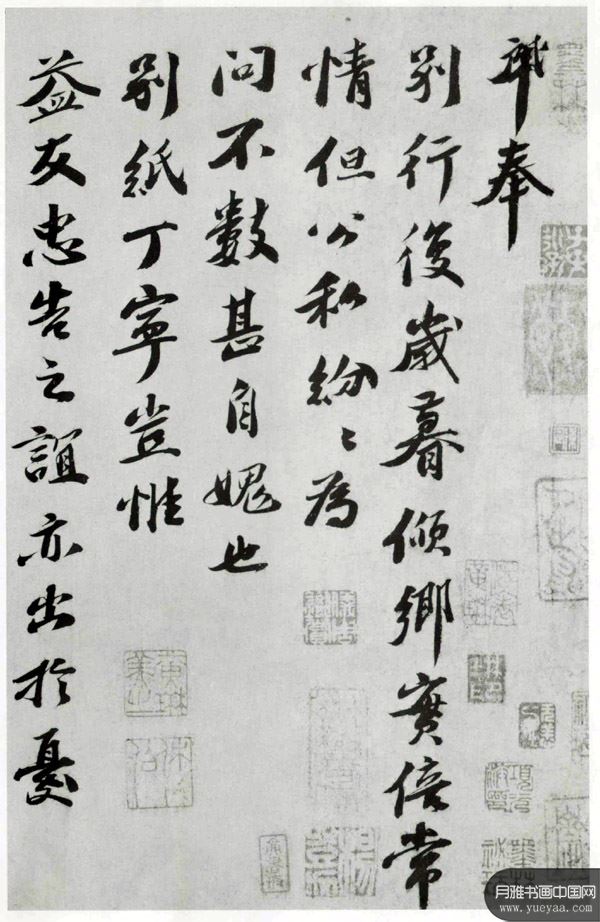 栻奉
别行後歲暮傾鄉實倍常
情但公私紛〻為
問不數甚自媿也
别紙丁寧豈惟
益友忠告之誼亦出於憂
月雅书画中国网
www.yueyaa.com